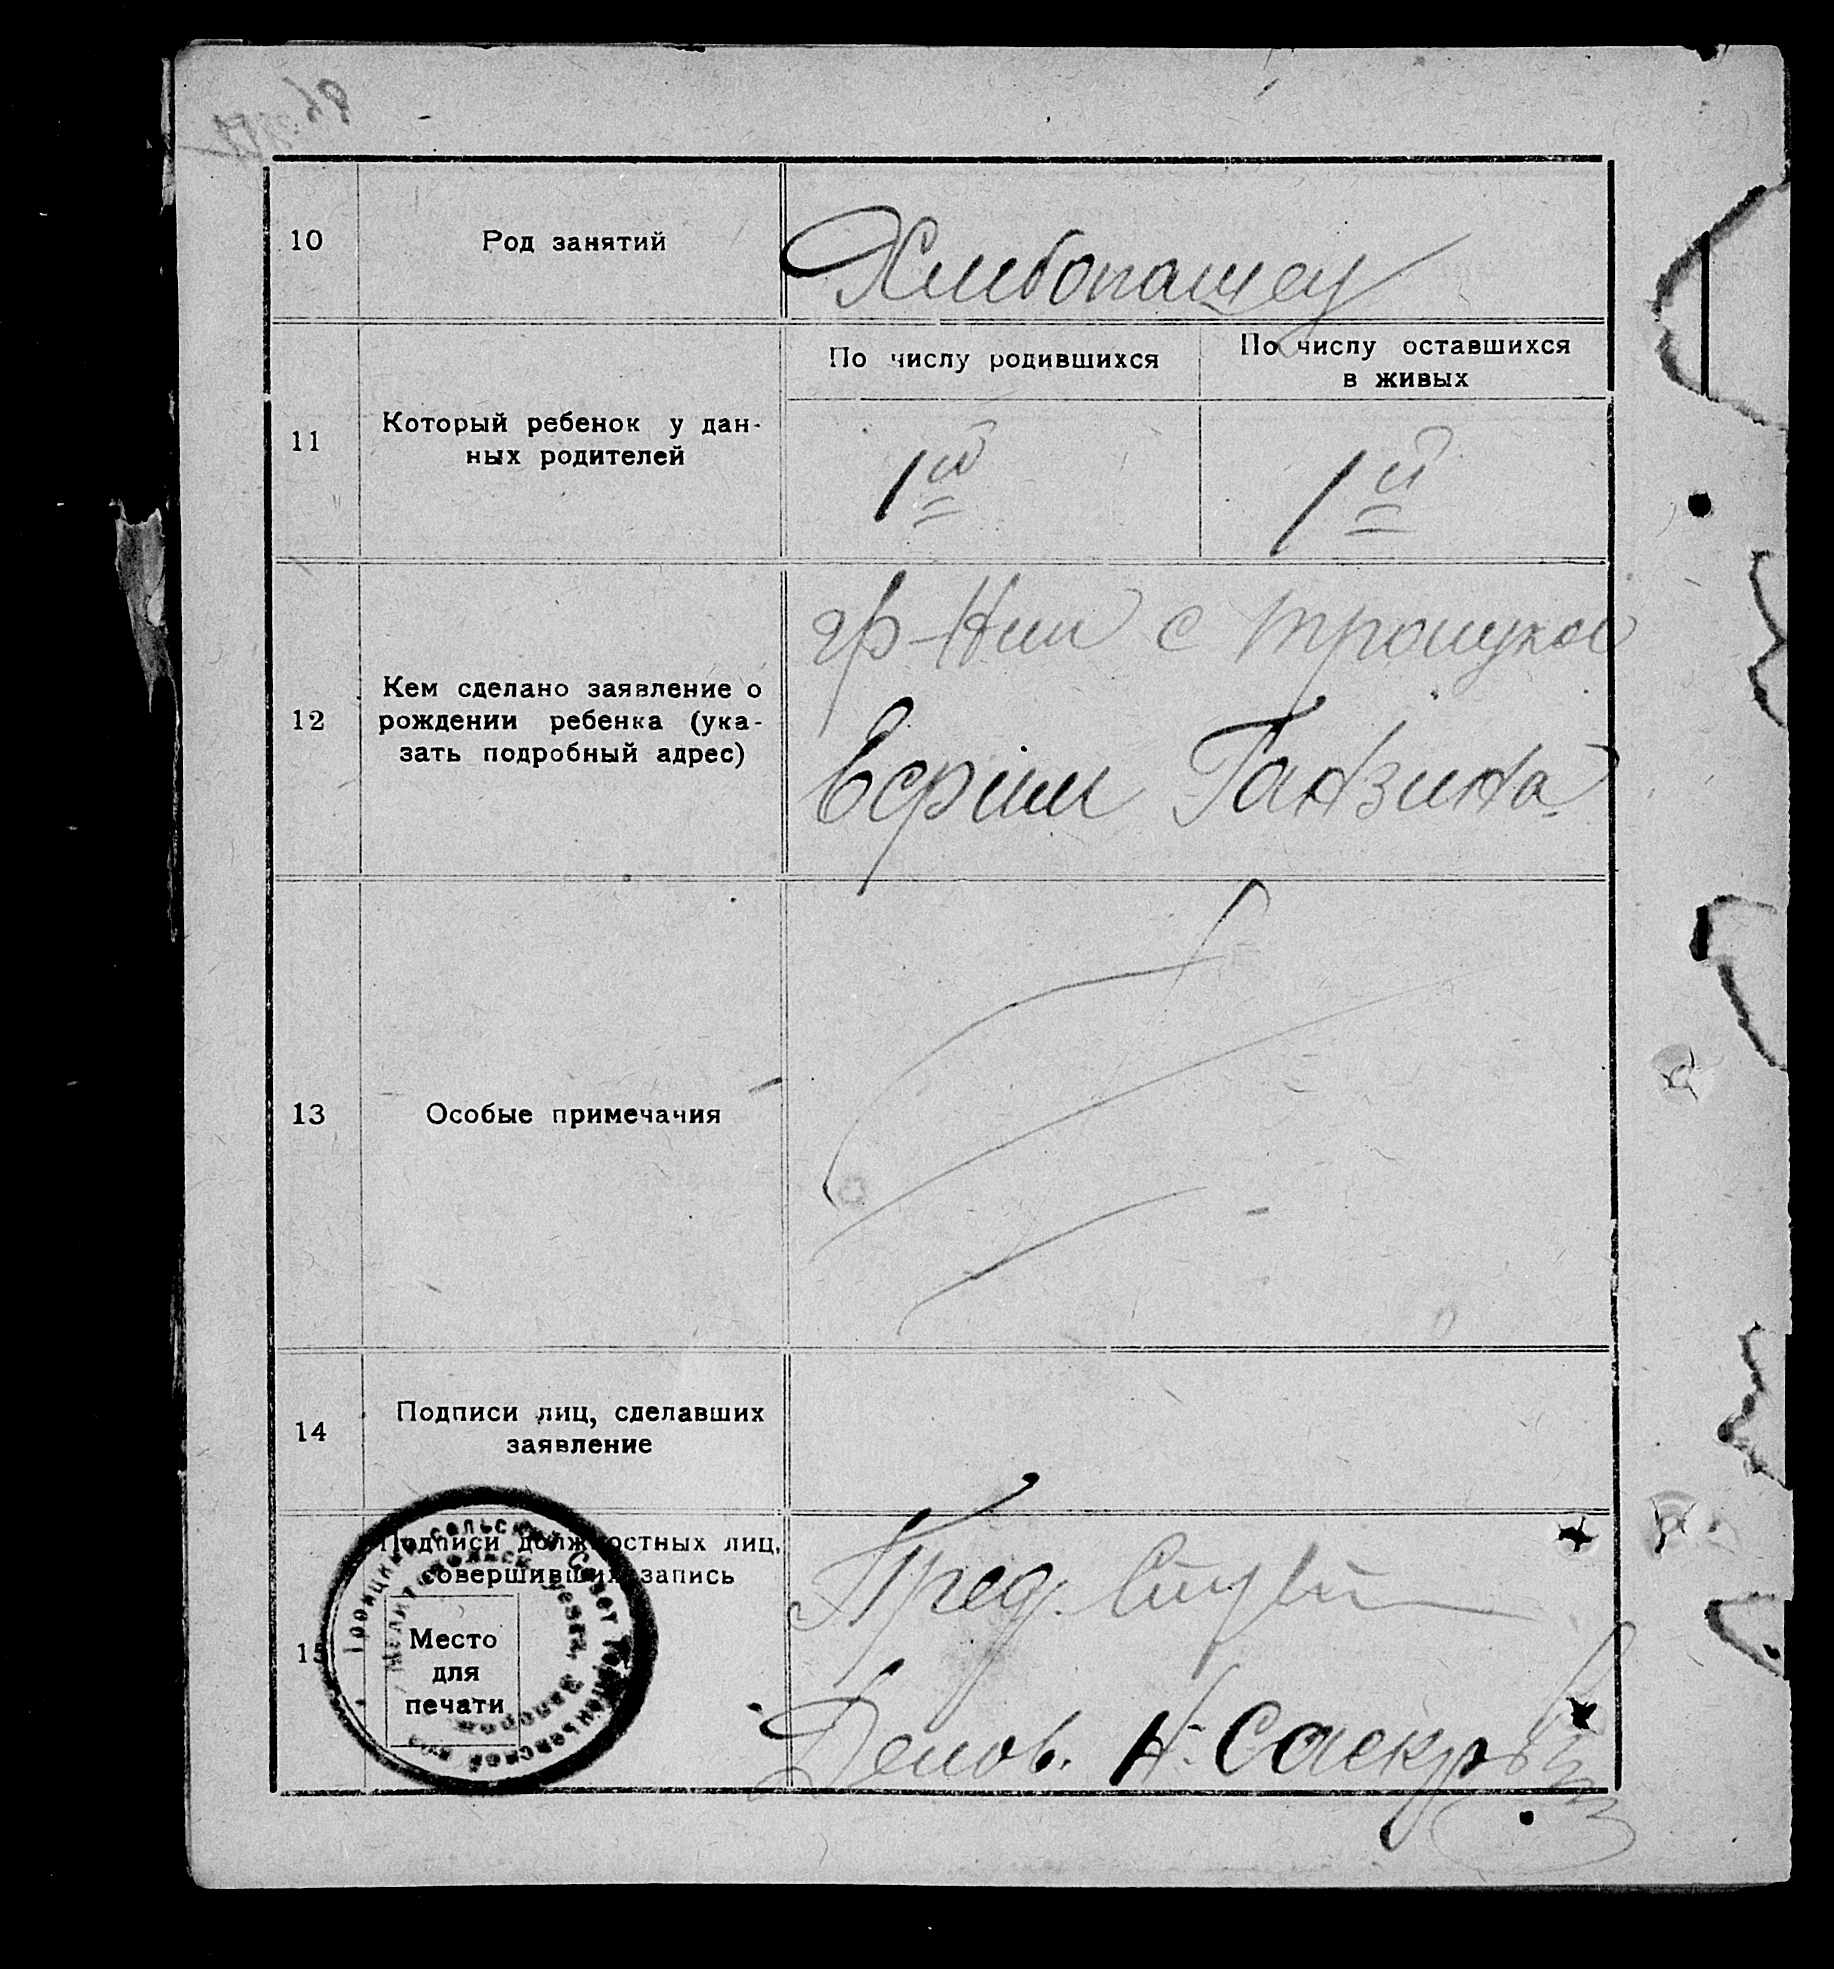 10
Род занятий
Хлибопашец
11
Который ребенок у дан-
ных родителей
По числу родившихся
По числу оставшихся
в живых
1ый
1й
12
Кем сделано заявление о
рождении ребенка (ука-
зать подробный адрес)
гр-нин с Троицкое
Ганзина
13
Особые примечания
14
Подписи лиц, сделавших
заявление
15
Подписи должностных лиц,
совершивших запись
Место
для
печати
Пред.
Делов. Н.